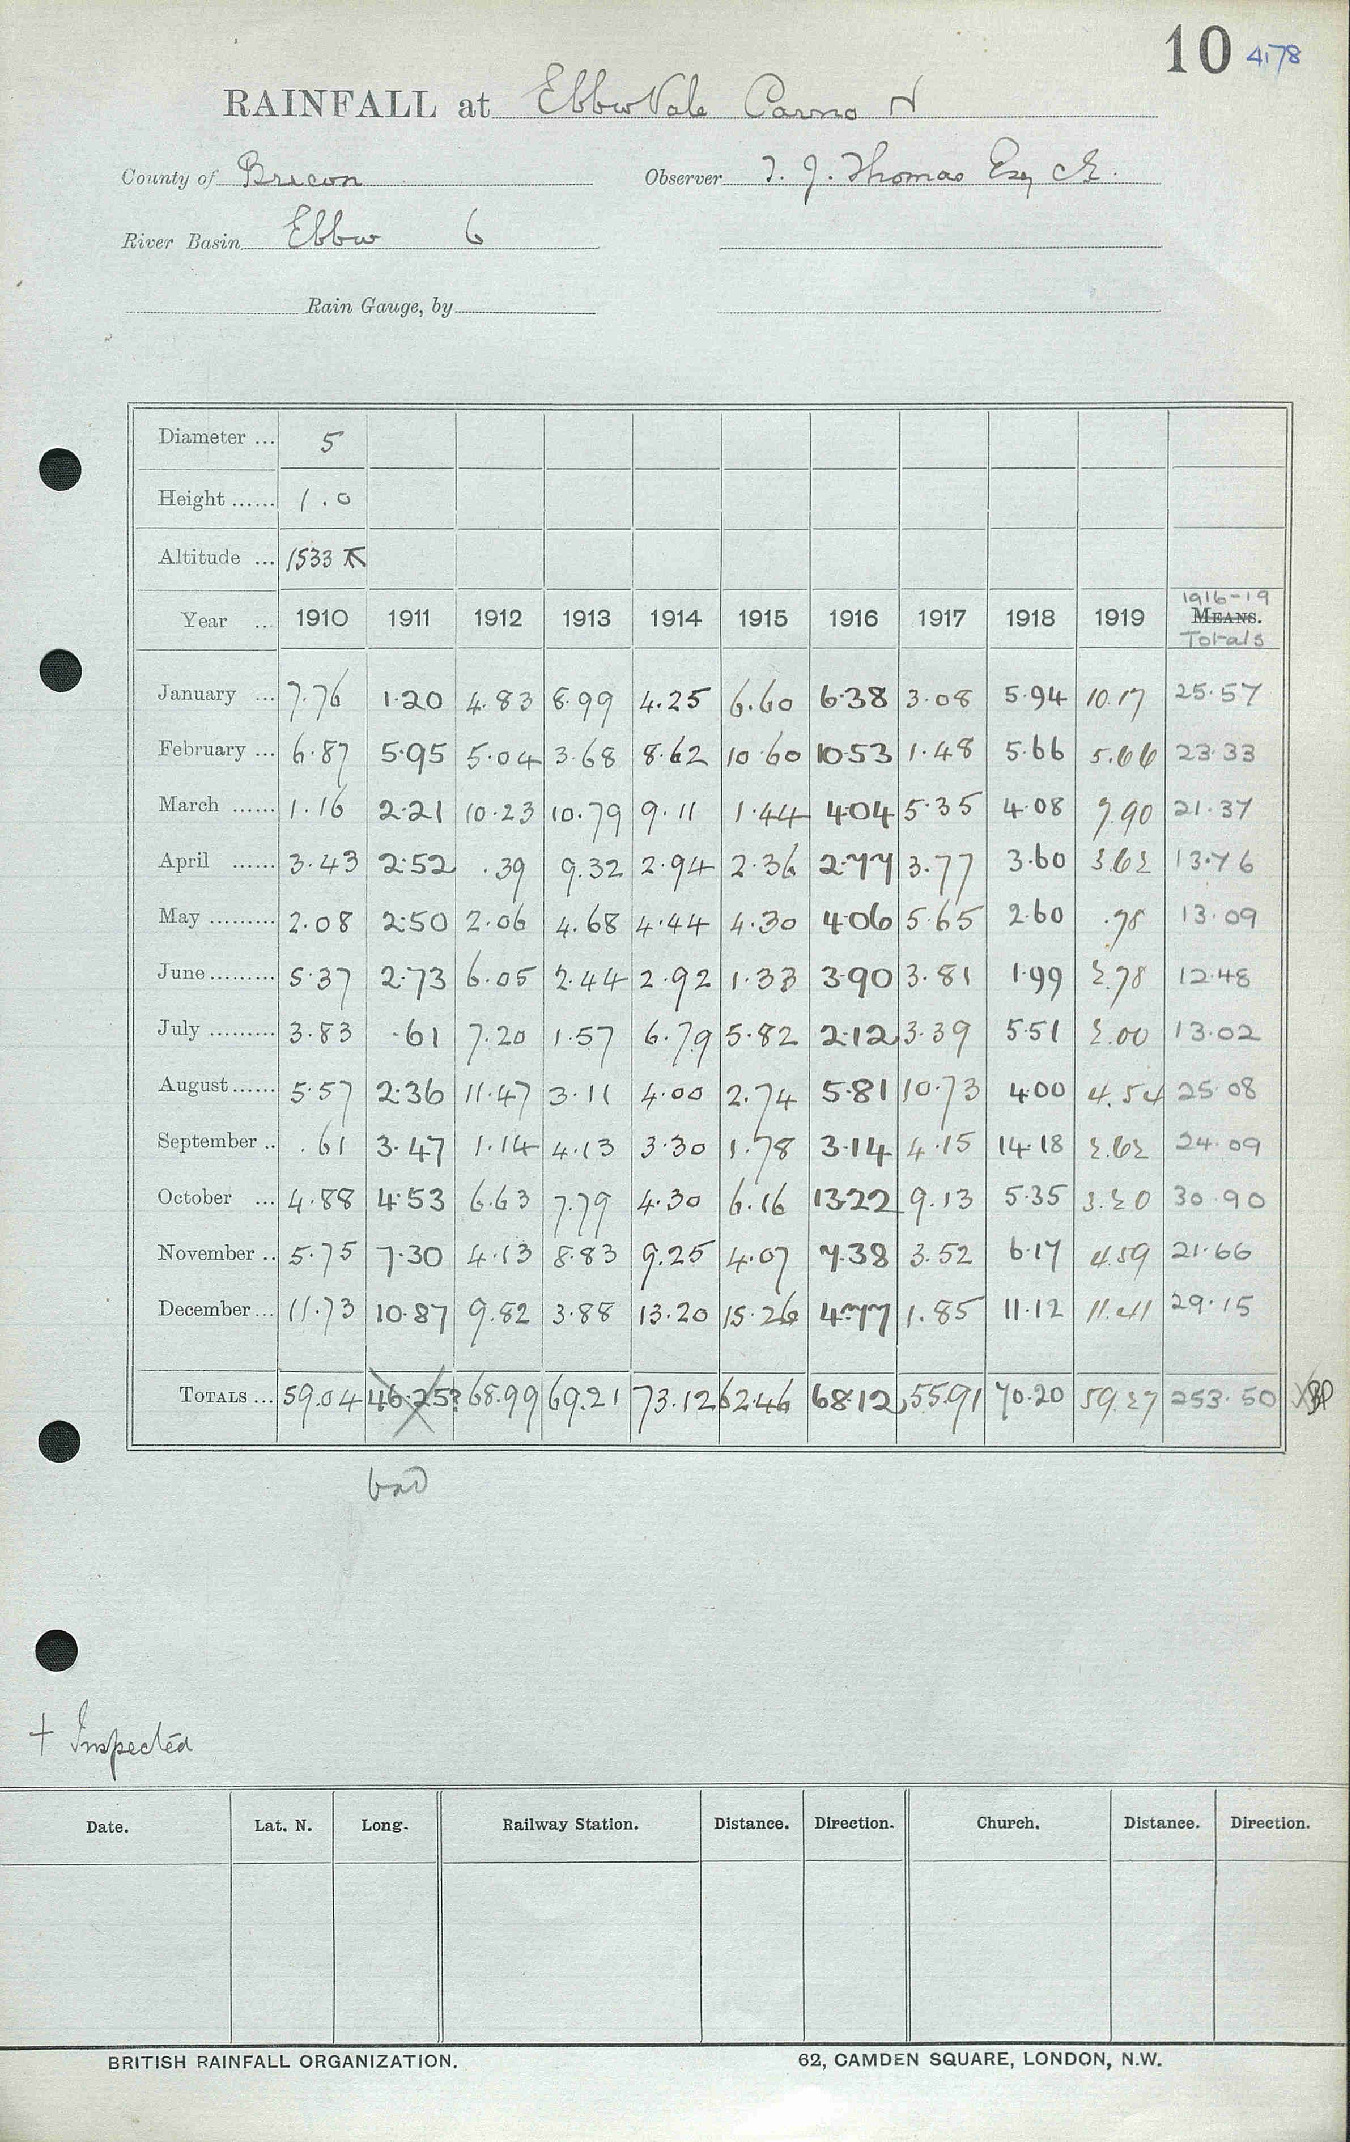 10 4178
RAINFALL at Ebbw Vale Carno
County of Brecon Observer T. J. Thomas Esq CE.
River Basin Ebbw 6
Rain Gauge, by
Diameter ... 5
Height ...... 1.0
Altitude ... 1533
1916-19
Year ... 1910 1911 1912 1913 1914 1915 1916 1917 1918 1919 MEANS.
Totals
January ... 7.76 1.20 4.83 8.99 4.25 6.60 6.38 3.08 5.94 10.17 25.57
February ... 6.87 5.95 5.04 3.68 8.62 10.60 10.53 1.48 5.66 5.66 23.33
March ...... 1.16 2.21 10.23 10.79 9.11 1.44 4.04 5.35 4.08 7.90 21.37
April ...... 3.43 2.52 .39 9.32 2.94 2.36 2.77 3.77 3.60 3.62 13.76
May ......... 2.08 2.50 2.06 4.68 4.44 4.30 4.06 5.65 2.60 .78 13.09
June ......... 5.37 2.73 6.05 2.44 2.92 1.33 3.90 3.81 1.99 2.78 12.48
July ......... 3.83 .61 7.20 1.57 6.79 5.82 2.12 3.39 5.51 2.00 13.02
August ...... 5.57 2.36 11.47 3.11 4.00 2.74 5.81 10.73 4.00 4.54 25.08
September .. .61 3.47 1.14 4.13 3.30 1.78 3.14 4.15 14.18 2.62 24.09
October ... 4.88 4.53 6.63 7.79 4.30 6.16 13.22 9.13 5.35 3.20 30.90
November .. 5.75 7.30 4.13 8.83 9.25 4.07 7.38 3.52 6.17 4.59 21.66
December ... 11.73 10.87 9.82 3.88 13.20 15.26 4.77 1.85 11.12 11.41 29.15
TOTALS ... 59.04 46.25? 68.99 69.21 73.12 62.46 68.12 55.91 70.20 59.27 253.50
bad
† Inspected
Date. Lat. N. Long. Railway Station. Distance. Direction. Church. Distance. Direction.
BRITISH RAINFALL ORGANIZATION. 62, CAMDEN SQUARE, LONDON, N.W.